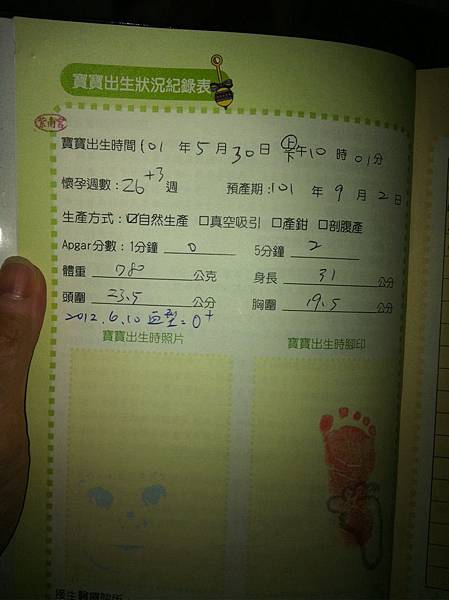 寶寶出生狀況紀錄表
紫南宮
寶寶出生時間 101 年 5 月 30 日 上下午 10 時 01 分
懷孕週數：26+3 週 預產期：101 年 9 月 2 日
生產方式：☑自然生產 □真空吸引 □產鉗 □剖腹產
Apgar分數：1分鐘 0 5分鐘 2
體重 780 公克 身長 31 公分
頭圍 23.5 公分 胸圍 19.5 公分
2012.6.10 血型：O+
寶寶出生時照片 寶寶出生時腳印
接生醫療院所：